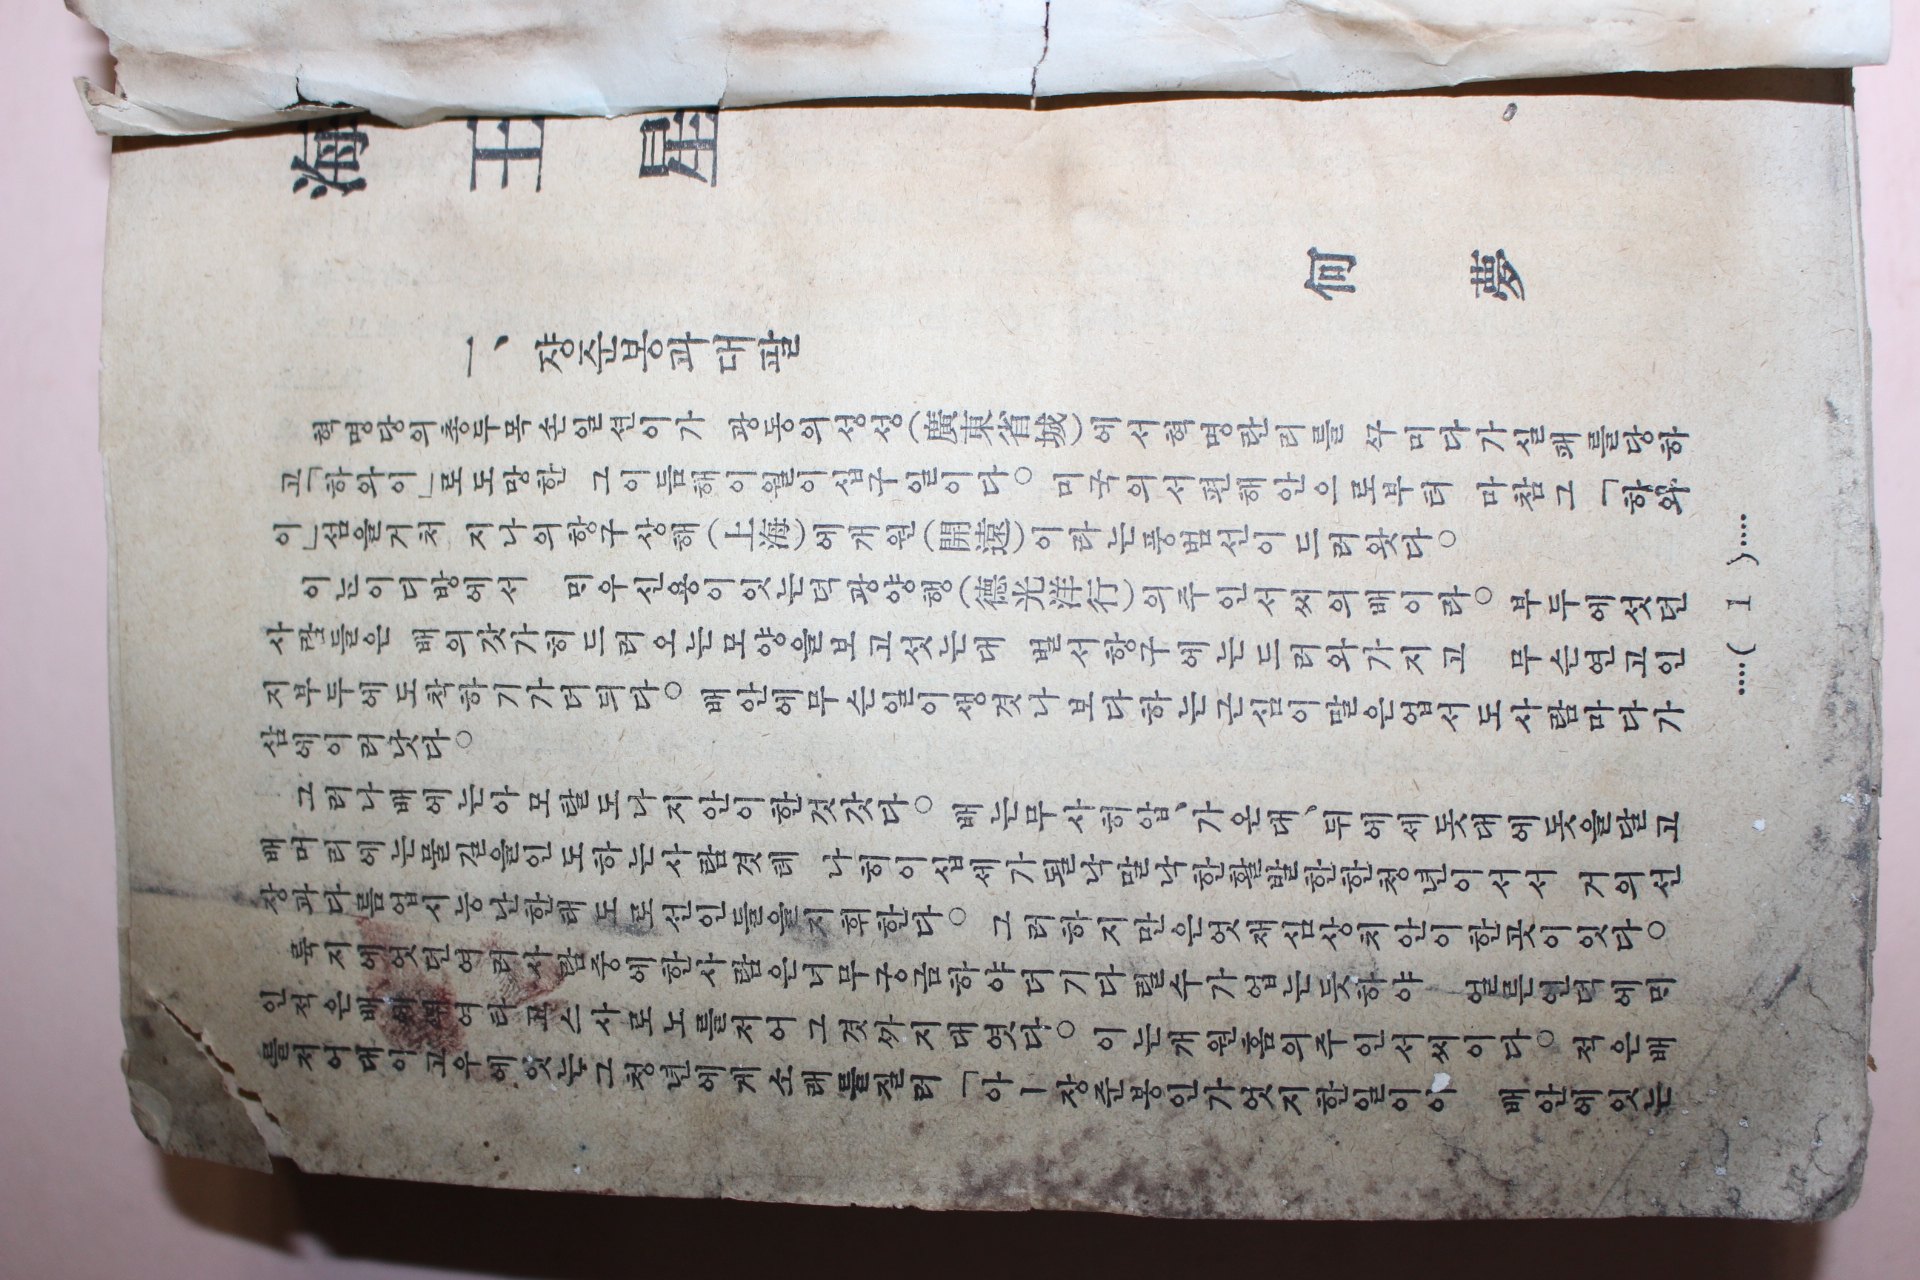 海王星
何夢
一、쟝준봉과대팔
혁명당의총두목손일션이가 광동의성셩(廣東省城)에서혁명란리를 꾸미다가실패를당하
고「하와이」로도망한 그이듬해이월이십구일이다○ 미국의서편해안으로부터 마참그「하와
이」섬을거쳐 지나의항구상해(上海)에개원(開遠)이라는풍범선이드러왓다○
이는이디방에서 매우신용이잇는덕광양행(德光洋行)의주인서씨의배이라○ 부두에섯던
사람들은 배의갓가히드러오는모양을보고섯는대 벌서항구에는드러와가지고 무슨연고인
지부두에도착하기가더되다○ 배안에무슨일이생겻나보다하는근심이말은업서도사람마다가
삼에이러낫다○
그러나배에는아모탈도나지안이한것갓다○ 배는무사히압、가온대、뒤에세돗대에돗을달고
배머리에는물길을인도하는사람겻테 나히이십세가될낙말낙한활발한한청년이서서 거의선
장과다름업시능난한태도로선인들을지휘한다○ 그러하지만은엇재심상치안이한곳이잇다○
륙지에잇던여러사람중에한사람은너무궁금하야더기다릴수가업는듯하야 얼른언덕에매
인적은배 여타고스사로노를저어그것까지대엿다○ 이는개원홈의주인서씨이다○ 적은배
를저어대이고우에잇는그청년에게소래를질러「아ー쟝준봉인가엇지한일이야 배안에잇는
....( 1 )....